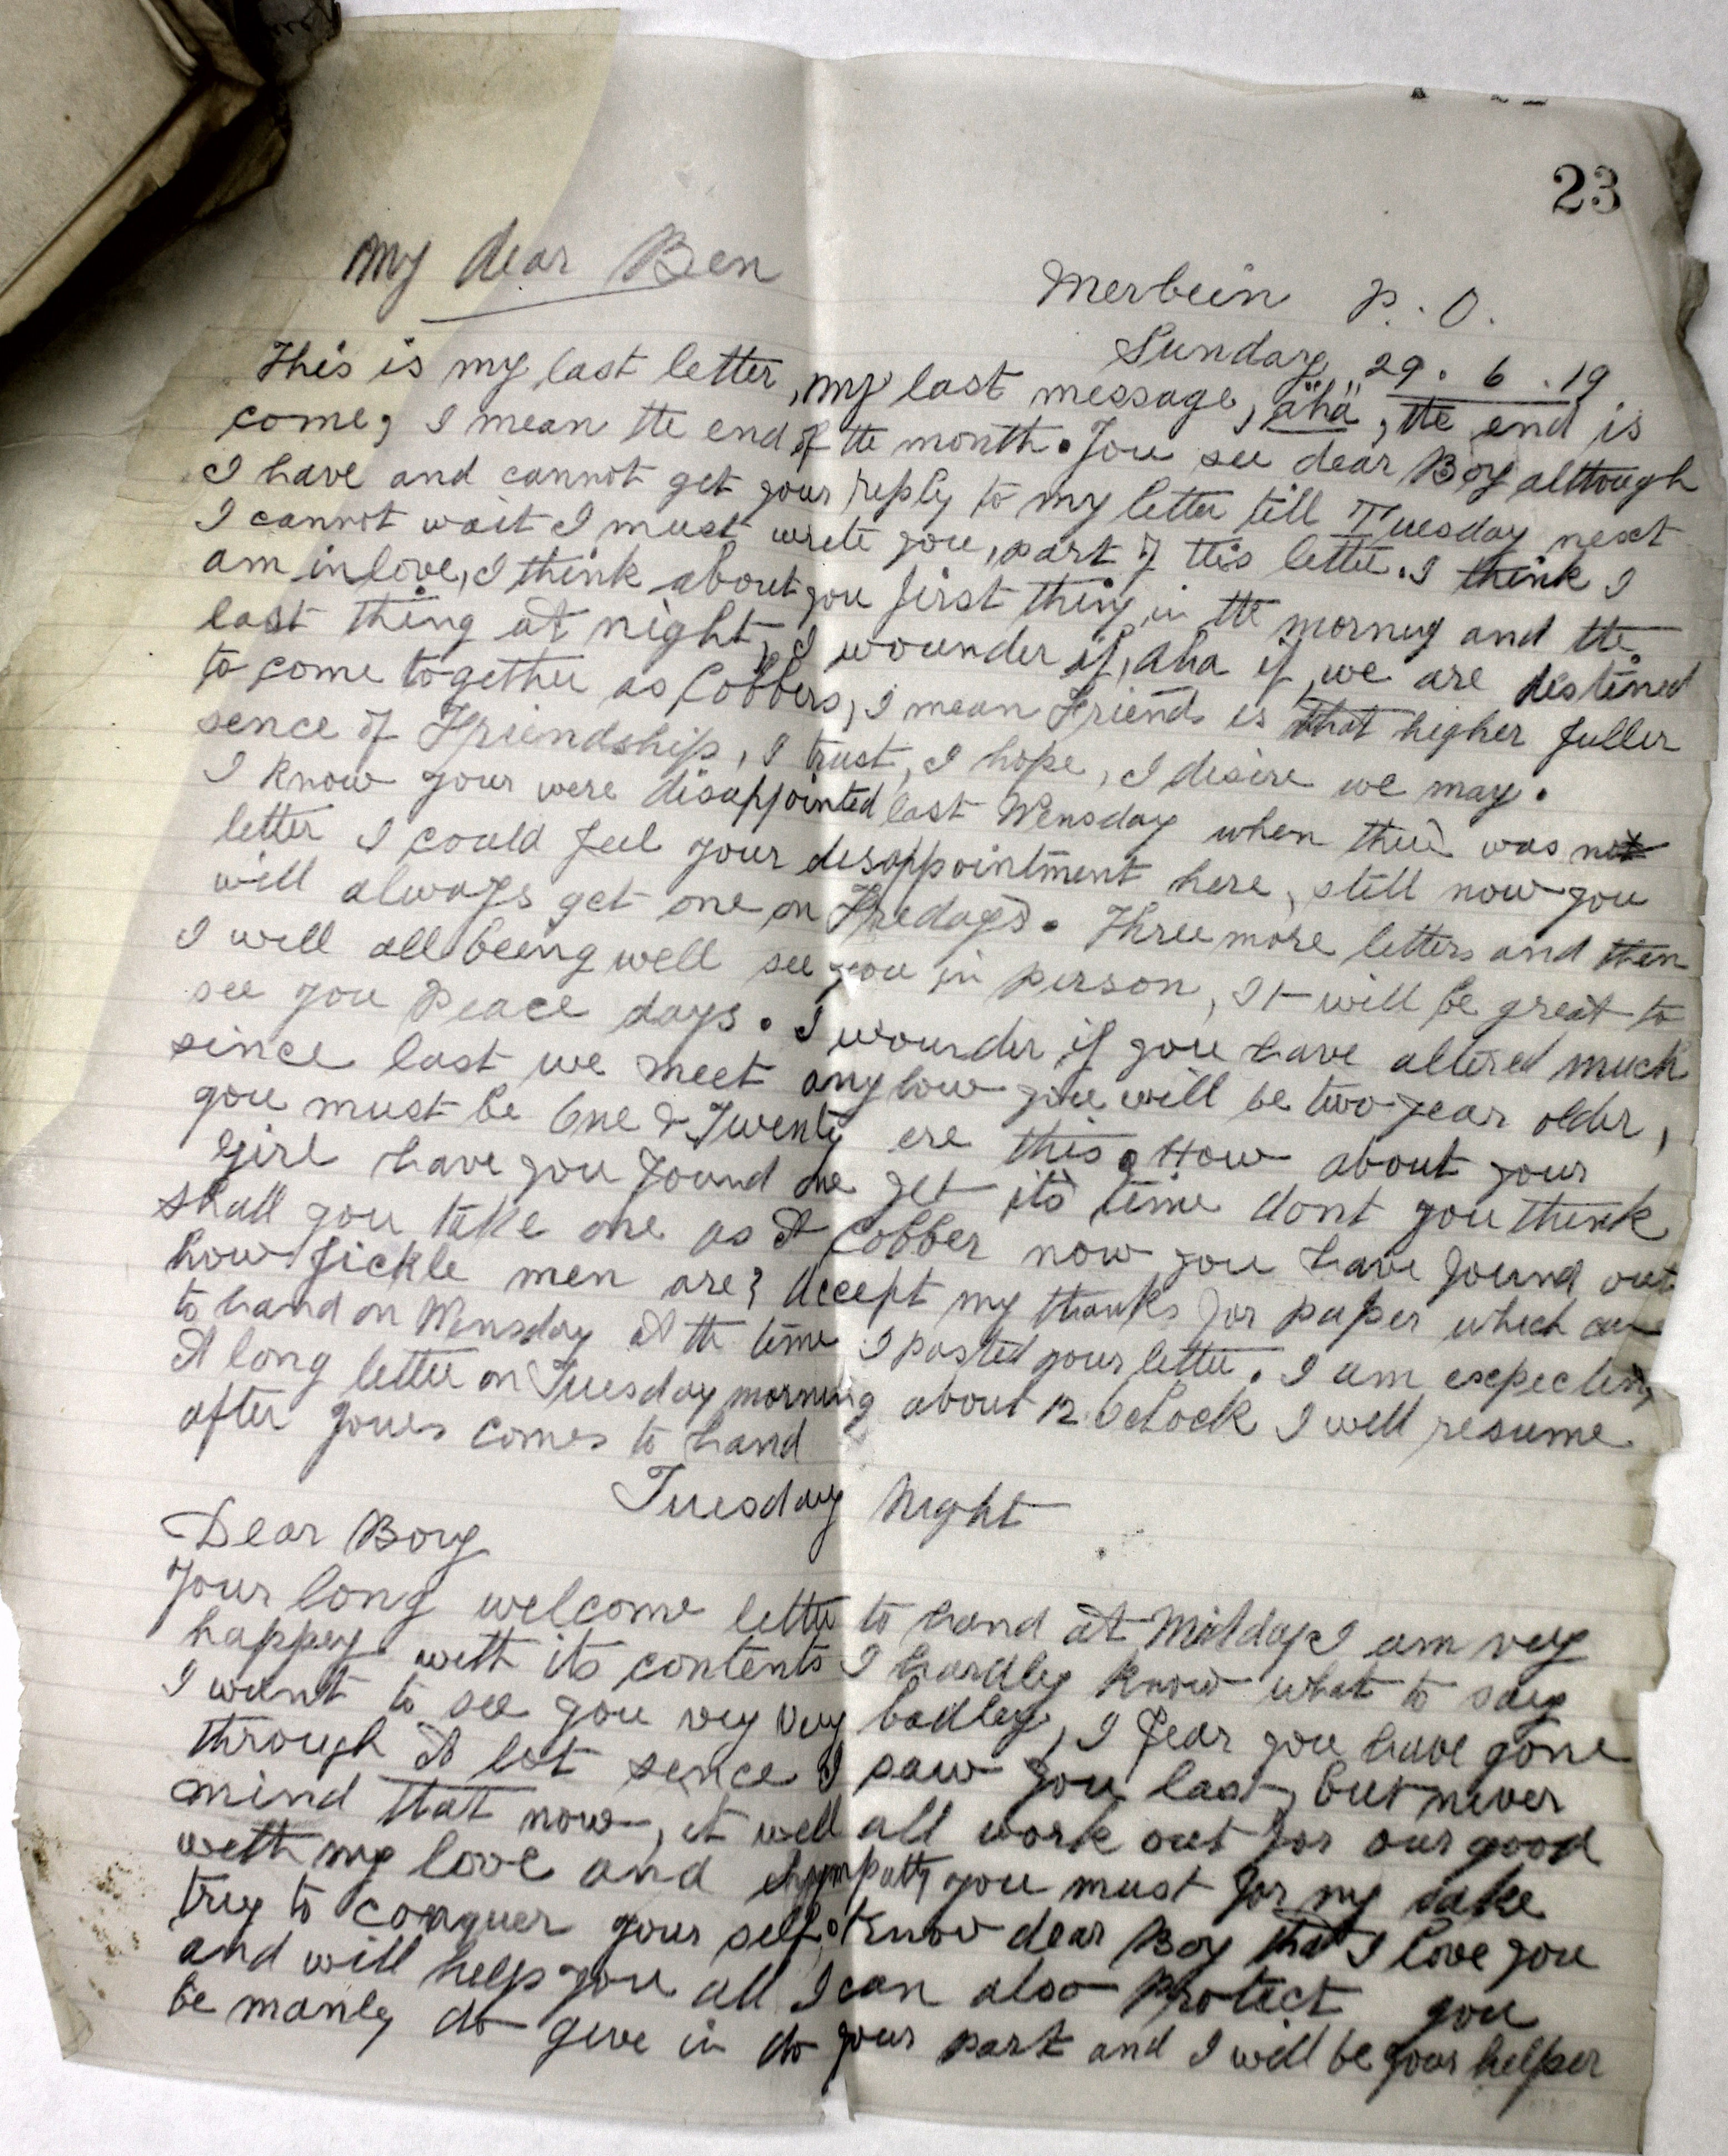 23
My dear Ben
Merbein P. O.
Sunday 29. 6. 19
This is my last letter, my last message, "aha", the end is
come, I mean the end of the month. You see dear Boy although
I have and cannot get your reply to my letter till Tuesday next
I cannot wait I must write you, part of this letter. I think I
am in love, I think about you first thing in the morning and the
last thing at night, I wounder if, aha if, we are destined
to come together as Cobbers, I mean Friends is that higher fuller
sence of Friendship, I trust, I hope, I desire we may.
I know your were disappointed last Wensday when their was not
letter I could feel your disappointment here, still now you
will always get one on Fridays. Three more letters and then
I will all being well see you in person, It will be great to
see you Peace days. I wounder if you have altered much
since last we meet anyhow you will be two year older,
you must be One & Twenty ere this. How about your
girl have you found one yet its time dont you think
shall you take one as A Cobber now you have found out
how fickle men are? Accept my thanks for paper which came
to hand on Wensday at the time I posted your letter. I am expecting
A long letter on Tuesday morning about 12 Oclock I will resume
after yours comes to hand
Tuesday Night
Dear Boy
Your long welcome letter to hand at Midday I am very
happy with its contents I hardly know what to say
I want to see you very very badley, I fear you have gone
through A lot sence I saw you last, but never
mind that now, it well all work out for our good
with my love and sympathy you must for my sake
try to conquer your self. Know dear Boy that I love you
and will help you all I can also Protect you
be manly do give in do your part and I will be your helper